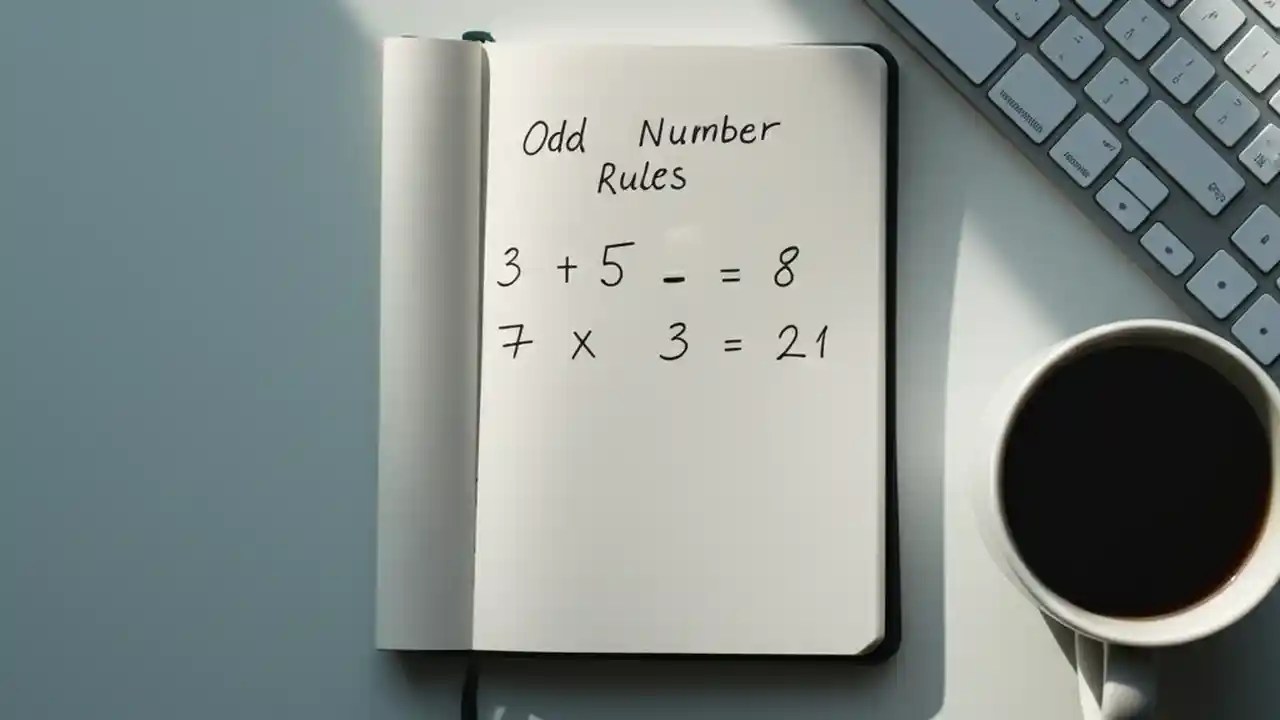 Odd Number
Rules
3 + 5 _ = 8
7 x 3 = 21